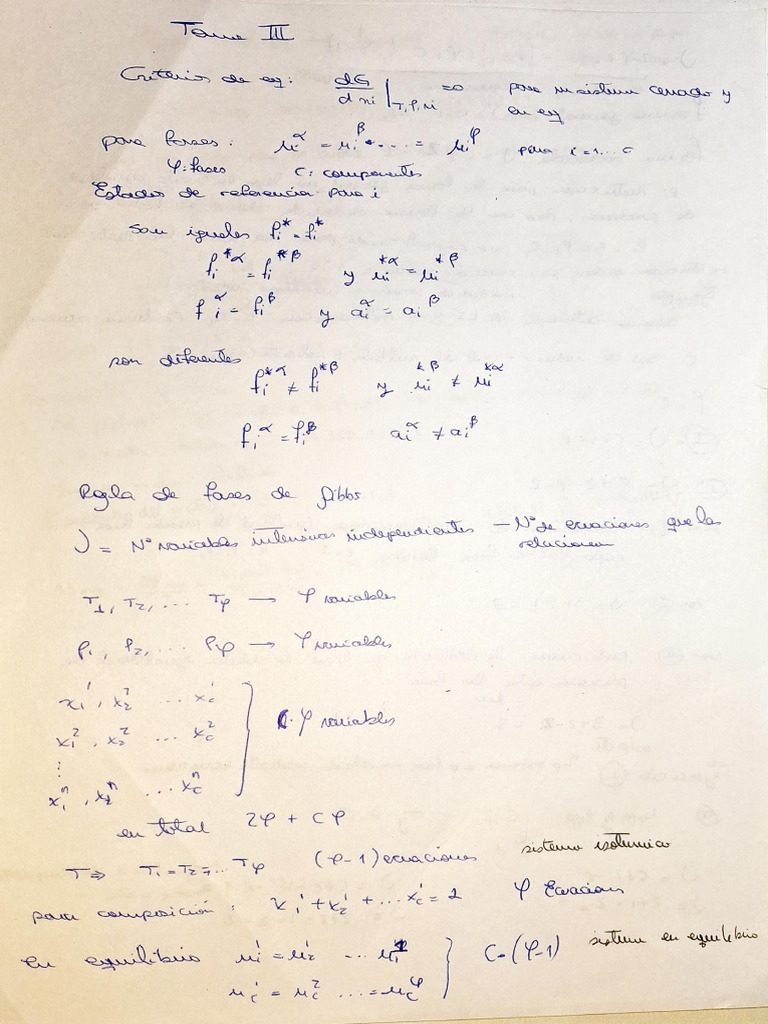 Tema III
Criterios de eq: dG/dni |T,P,ni =0 para un sistema cerrado y en eq
para fases: μi^α = μi^β = .... = μi^φ para i=1... c
φ: fases C: componentes
Estados de referencia para i
Son iguales fi^* = fi^*
fi^*α = fi^*β y μi^*α = μi^*β
fi^α = fi^β y ai^α = ai^β
son diferentes
fi^*α ≠ fi^*β y μi^*β ≠ μi^*α
fi^α = fi^β ai^α ≠ ai^β
Regla de fases de Gibbs
J = Nº variables intensivas independientes — Nº de ecuaciones que las relacionan
T1, T2, ... Tφ → φ variables
P1, P2, ... Pφ → φ variables
x1^1, x2^1 ... xc^1
x1^2, x2^2 ... xc^2 } C·φ variables
⋮
x1^n, x2^n ... xc^n
en total 2φ + Cφ
T ⇒ T1 = T2 = ... Tφ (φ-1) ecuaciones sistema isotermico
para composición: x1^1 + x2^1 + ... xc^1 = 1 φ Ecuacion
en equilibrio μi^1 = μi^2 ... μ1^φ } C·(φ-1) sistema en equilibrio
μc^1 = μc^2 ... = μc^φ